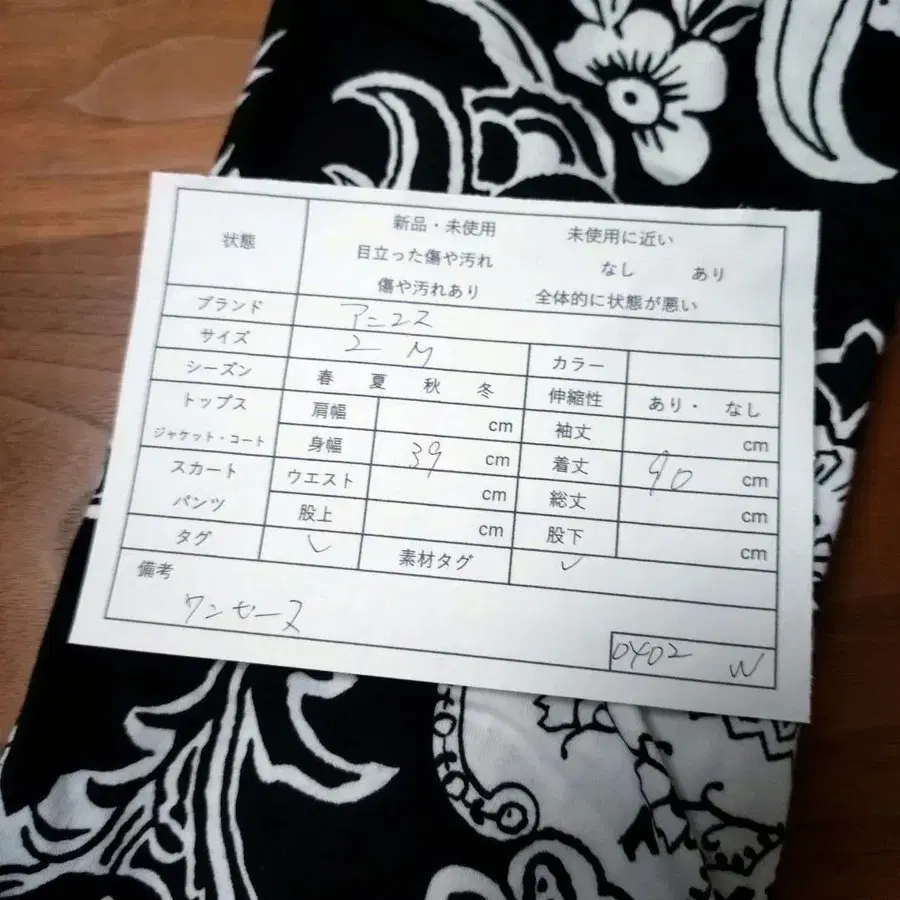 状態 新品・未使用 未使用に近い
目立った傷や汚れ なし あり
傷や汚れあり 全体的に状態が悪い
ブランド アニエス
サイズ 2 M カラー
シーズン 春 夏 秋 冬 伸縮性 あり・ なし
トップス 肩幅 cm 袖丈 cm
ジャケット・コート 身幅 39 cm 着丈 90 cm
スカート ウエスト cm 総丈 cm
パンツ 股上 cm 股下 cm
タグ ✓ 素材タグ ✓
備考
ワンピース
0402 W